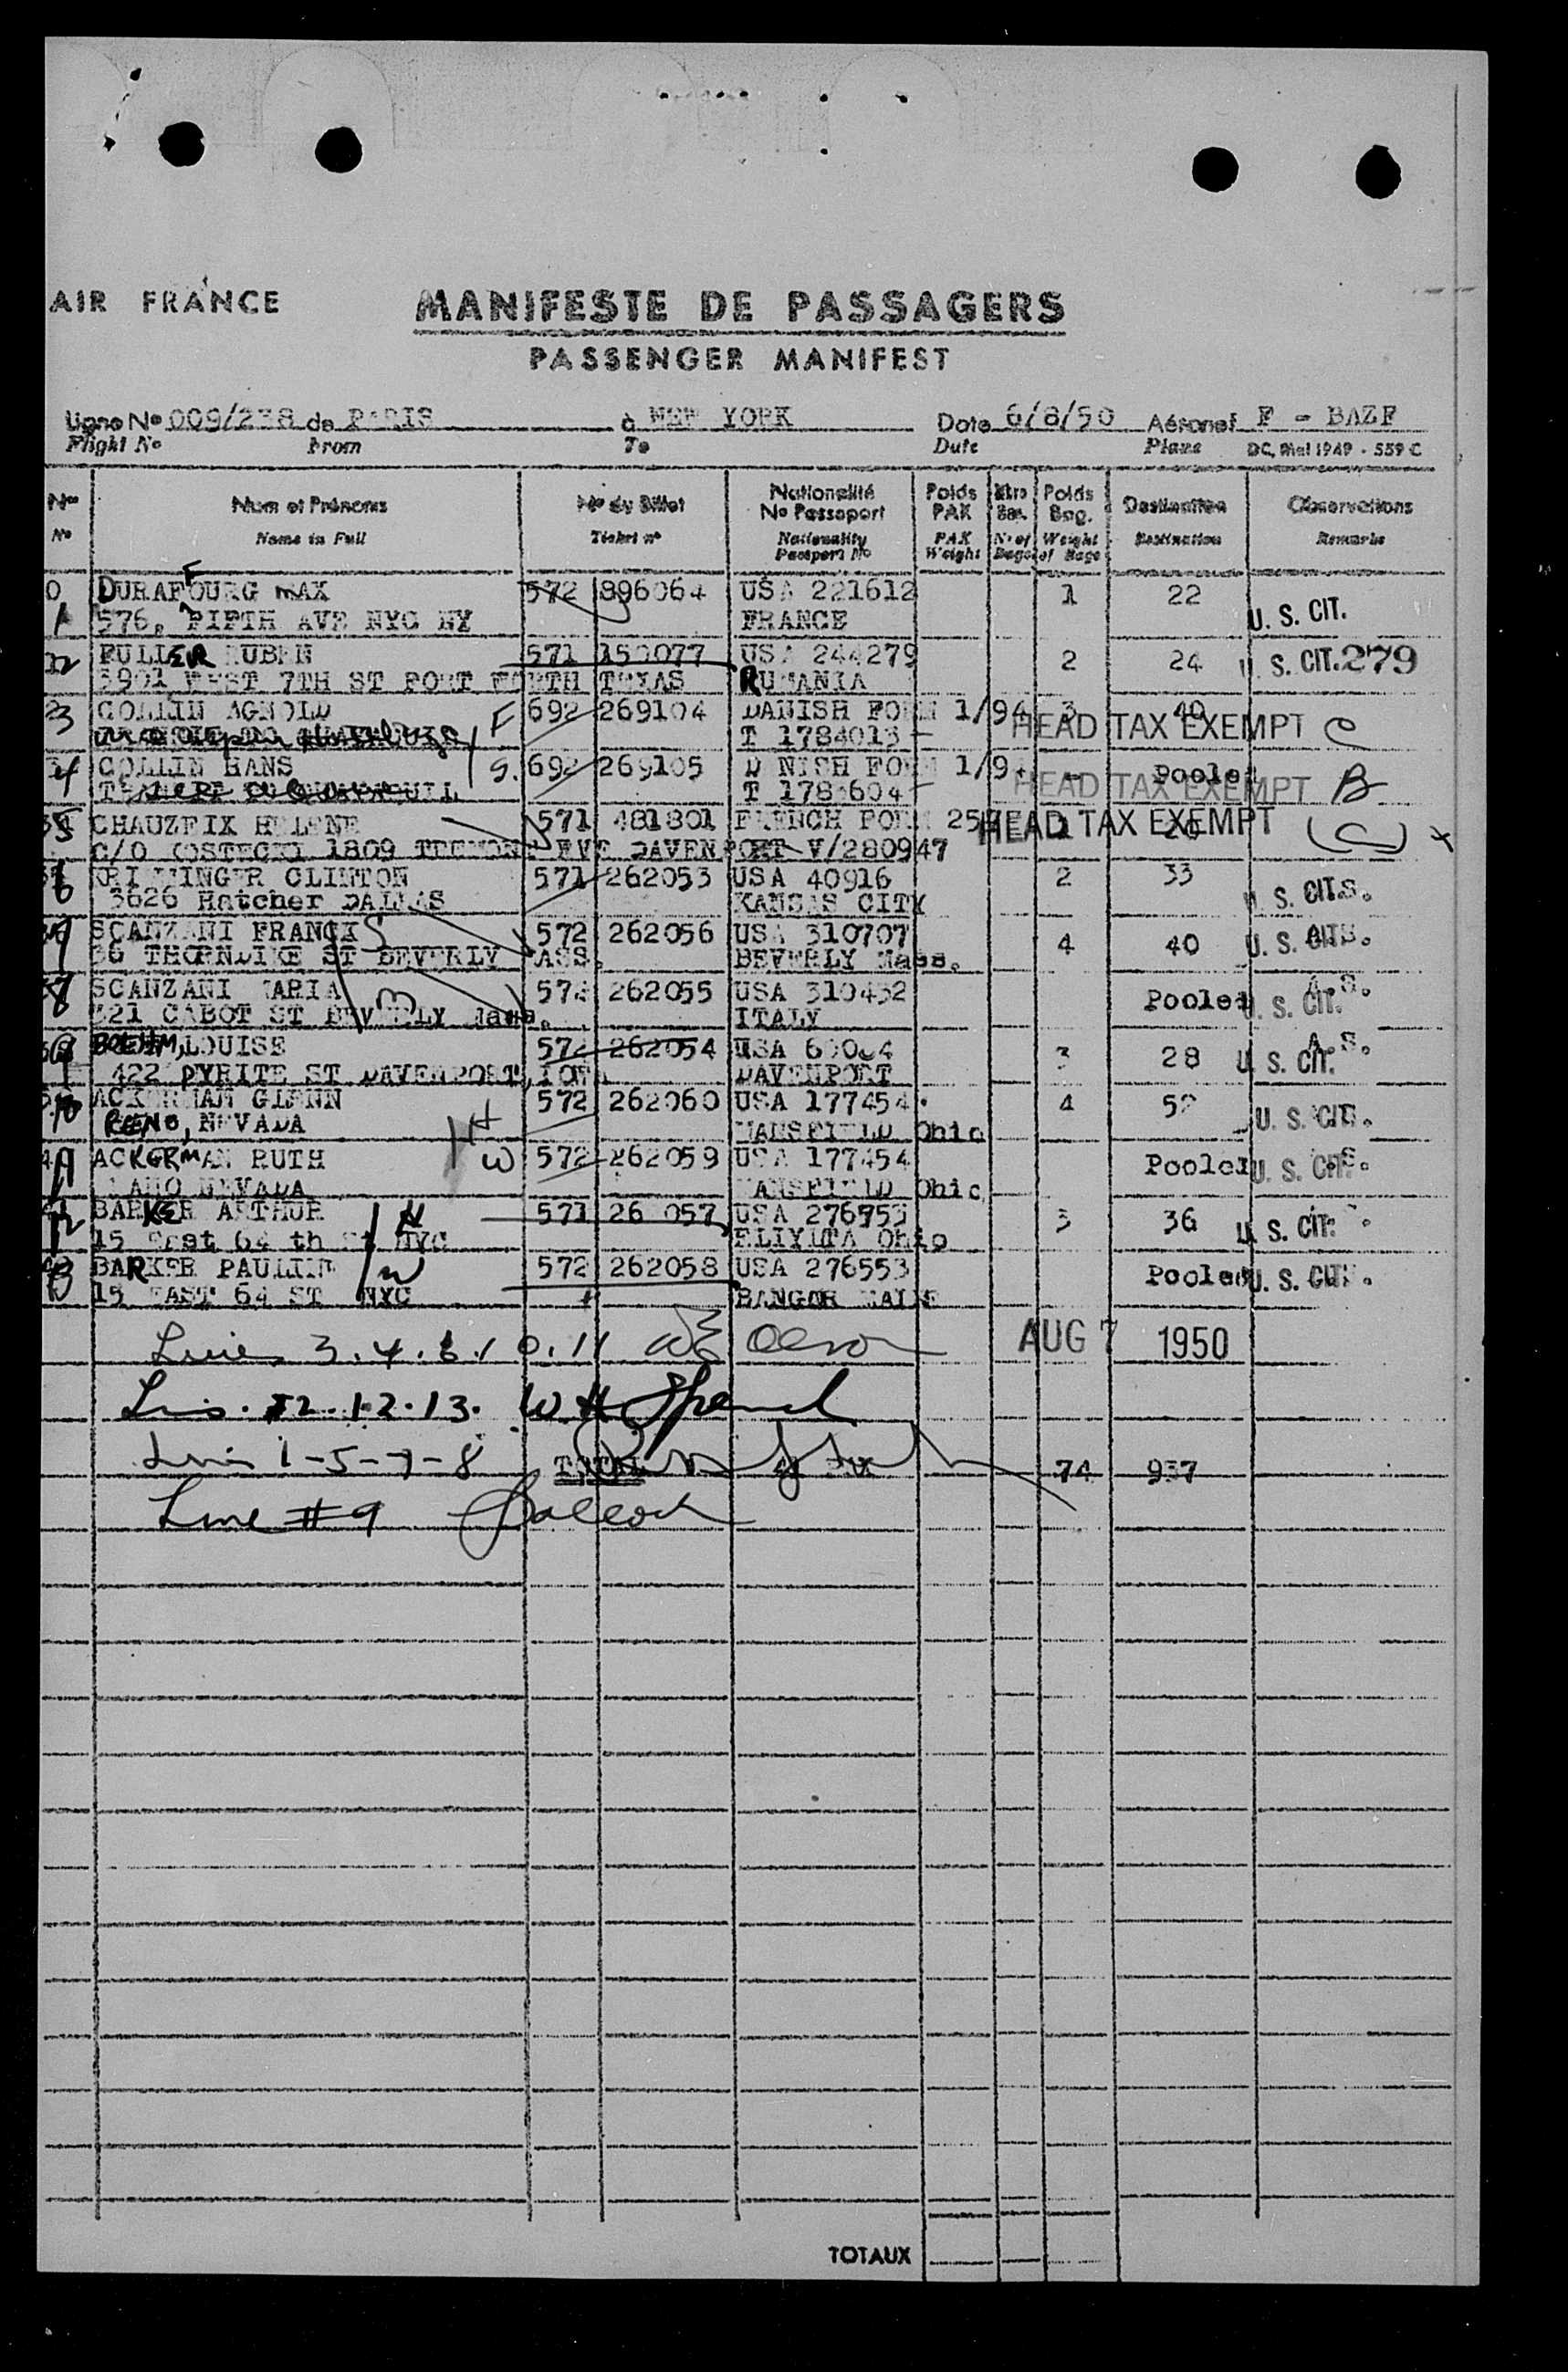 AIR FRANCE
MANIFESTE DE PASSAGERS
PASSENGER MANIFEST
Ligne No 009/238 de PARIS à NEW YORK Date 6/8/50 Aéronef F - BAZF
Flight No From To Date Plane DC, Mai 1949 - 559 C
Nos Nom et Prénoms No du Billet Nationalité No Passeport Poids PAX Nbre Bag. Poids Bag. Destination Observations
No Name in Full Ticket no Nationality Passport No PAX Weight No of Bags Weight of Bags Destination Remarks
1 DURAFFOURG MAX 572 896064 USA 221612 1 22 U. S. CIT.
576, FIFTH AVE NYC NY FRANCE
2 FULLER RUBEN 571 150077 USA 244279 2 24 U. S. CIT. 279
3901 WEST 7TH ST FORT WORTH TEXAS RUMANIA
3 COLLIN AGNOLD F 692 269104 DANISH FORM 1/94 3 40 HEAD TAX EXEMPT C
T 1784013
4 COLLIN HANS S. 692 269105 DANISH FORM 1/94 Pooled HEAD TAX EXEMPT B
T 1784604
5 CHAUZEIX HELENE 571 481801 FRENCH FORM 257 1 20 HEAD TAX EXEMPT (C) x
C/O KOSTECKI 1809 TREMONT EVE DAVENPORT V/280947
6 CLINTON 571 262053 USA 40916 2 33 U. S. CIT.
3626 Hatcher DALLAS KANSAS CITY
7 SCANZANI FRANCIS 572 262056 USA 310707 4 40 U. S. CIT.
36 THORNDIKE ST BEVERLY MASS. BEVERLY Mass.
8 SCANZANI MARIA 572 262055 USA 310432 Pooled U. S. CIT.
321 CABOT ST BEVERLY Mass. ITALY
9 BOEHM, LOUISE 572 262054 USA 3 28 U. S. CIT.
422 PYRITE ST DAVENPORT, IOWA DAVENPORT
10 ACKERMAN GLENN H 572 262060 USA 177454 4 52 U. S. CIT.
RENO, NEVADA MANSFIELD Ohio
11 ACKERMAN RUTH W 572 262059 USA 177454 Pooled U. S. CIT.
NEVADA MANSFIELD Ohio
12 BARKER ARTHUR H 571 26 057 USA 276553 3 36 U. S. CIT.
15 East 64 th St NYC Ohio
13 BARKER PAULINE W 572 262058 USA 276553 Pooled U. S. CIT.
15 EAST 64 ST NYC BANGOR MAINE
Lines 3.4.6.10.11 Olson AUG 7 1950
Lines 2.12.13. W H
Lines 1-5-7-8 TOTAL PAX 74 937
Line #9
TOTAUX